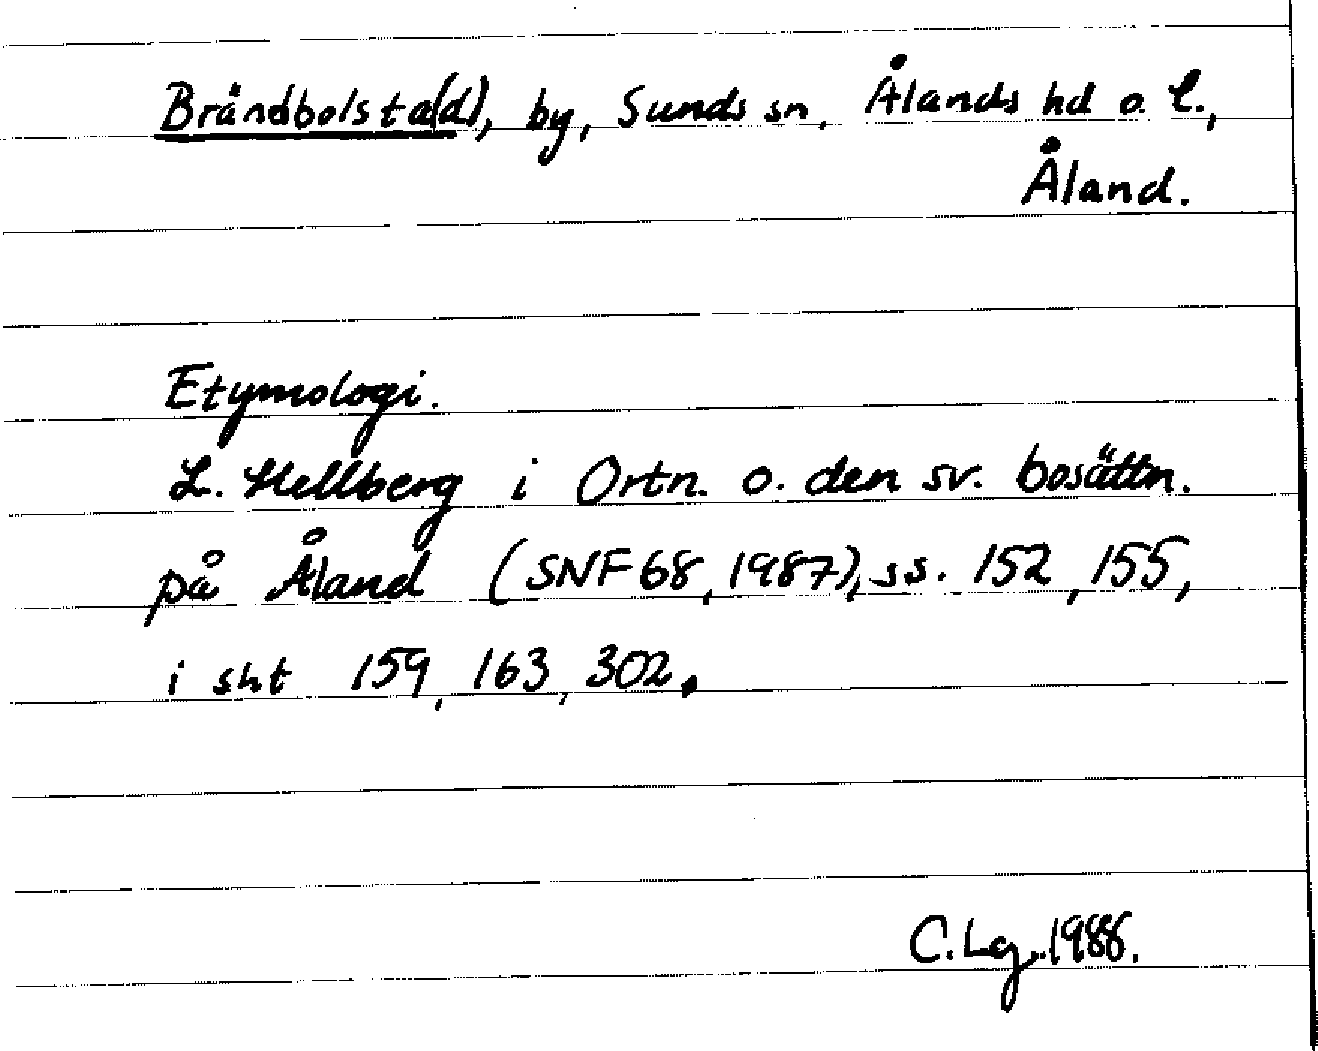 Brändbolsta(d), by, Sunds sn, Ålands hd o. l.,
Åland.
Etymologi.
L. Hellberg i Ortn. o. den sv. bosättn.
på Åland (SNF 68, 1987), ss. 152, 155,
i sht 159, 163, 302.
C. Lg. 1988.